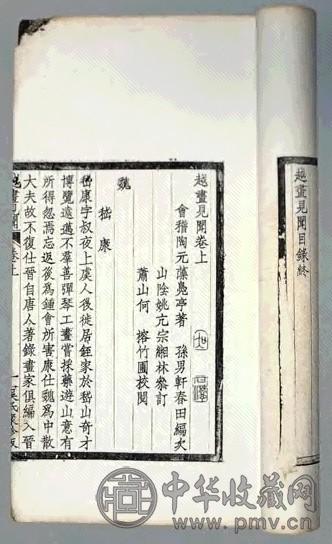 越畫見聞目錄終
越畫見聞卷上
會稽陶元藻鳧亭著 孫男軒春田編次
山陰姚亢宗緗林參訂
蕭山何 榕竹圃校閱
魏
嵇康
嵇康字叔夜上虞人後徙居銍家於嵇山奇才
博覽遠邁不羣善彈琴工畫嘗採藥遊山意有
所得忽焉忘返後為鍾會所害康仕魏為中散
大夫故不復仕晉自唐人著錄畫家俱編入晉
越畫見聞 卷上 一
中华收藏网
www.pmv.cn